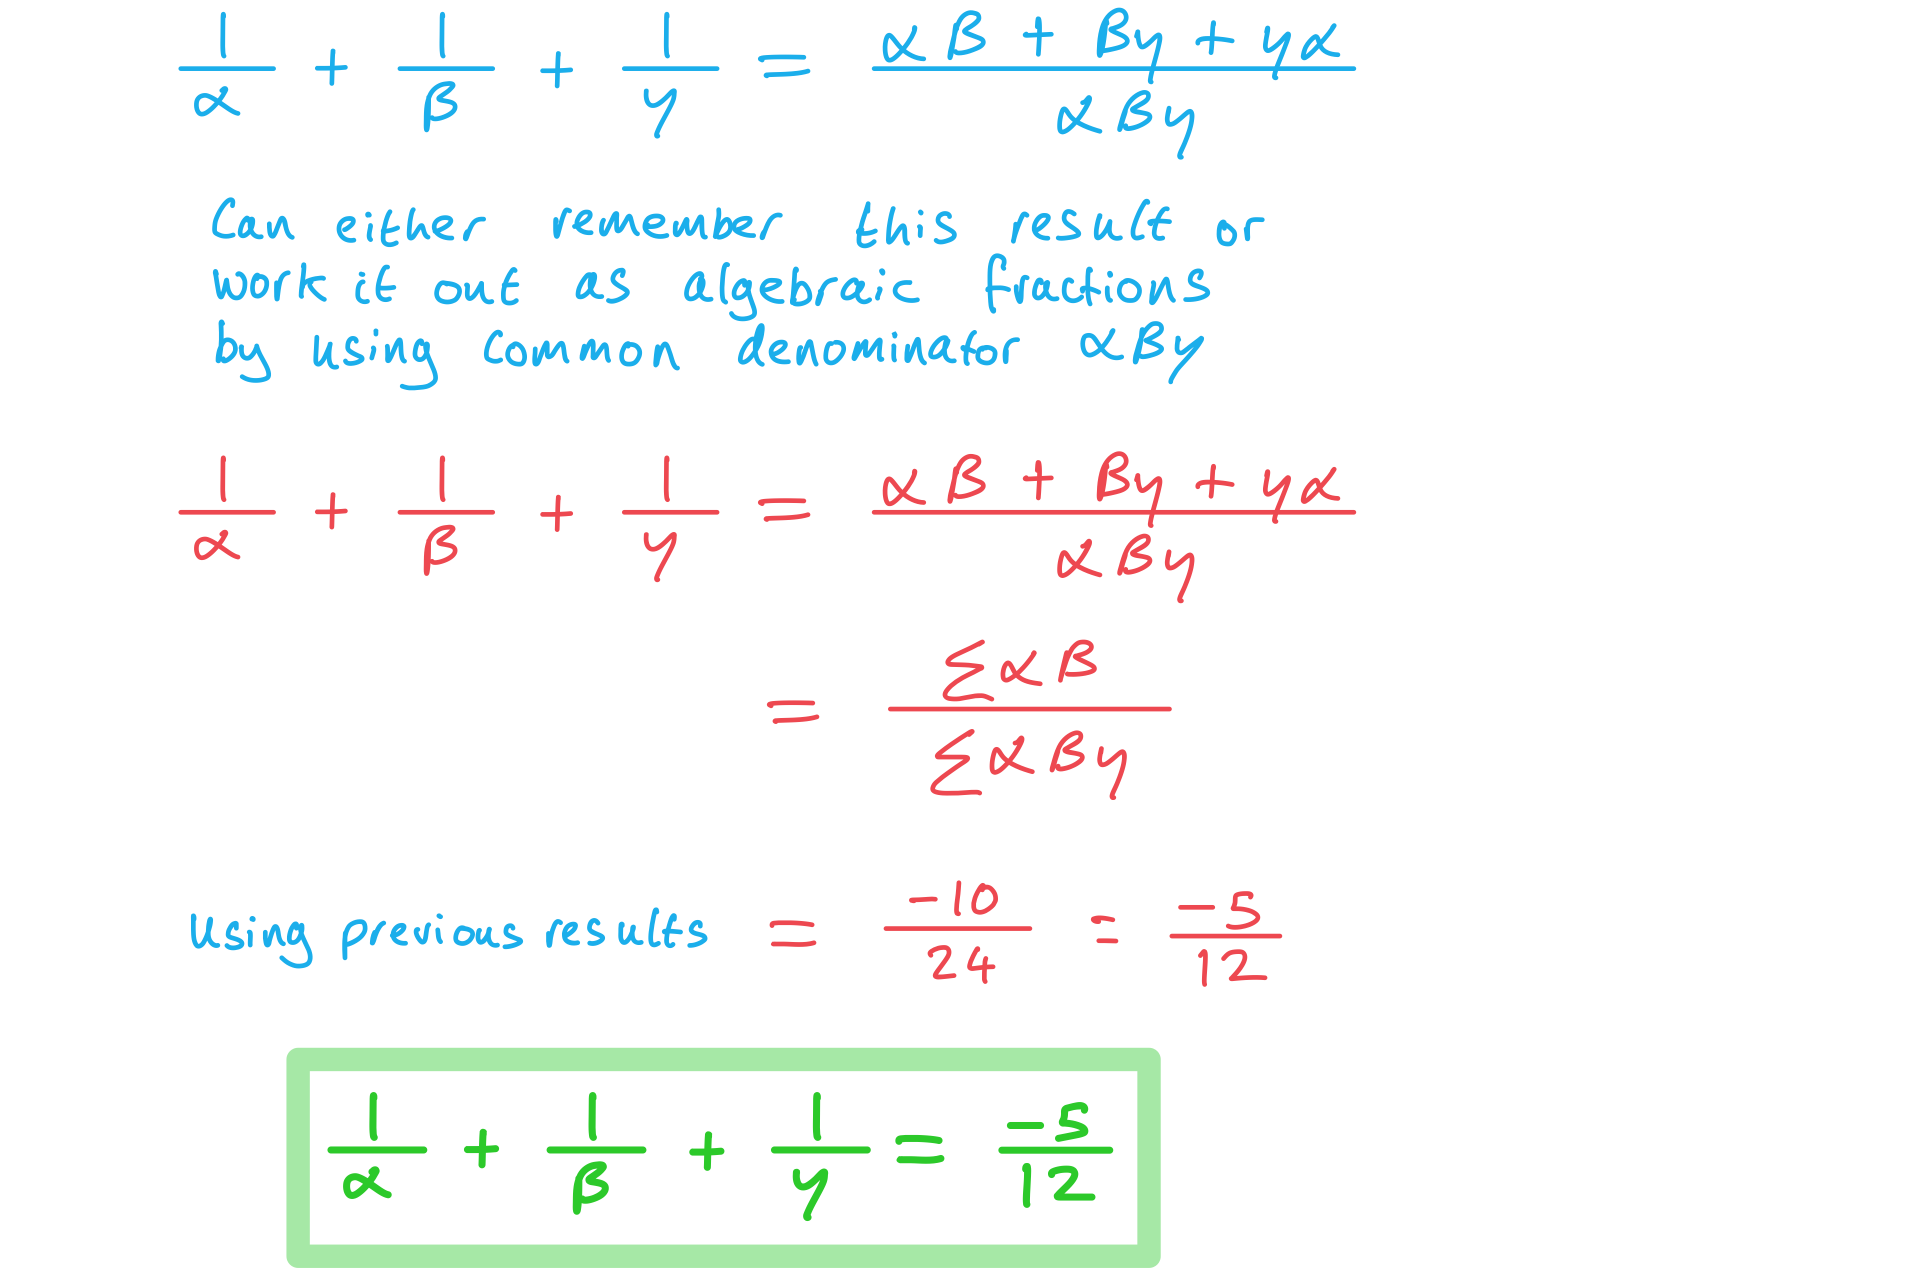 1/α + 1/β + 1/γ = (αβ + βγ + γα)/(αβγ)
Can either remember this result or
work it out as algebraic fractions
by using common denominator αβγ
1/α + 1/β + 1/γ = (αβ + βγ + γα)/(αβγ)
= (∑αβ)/(∑αβγ)
Using previous results = -10/24 = -5/12
1/α + 1/β + 1/γ = -5/12